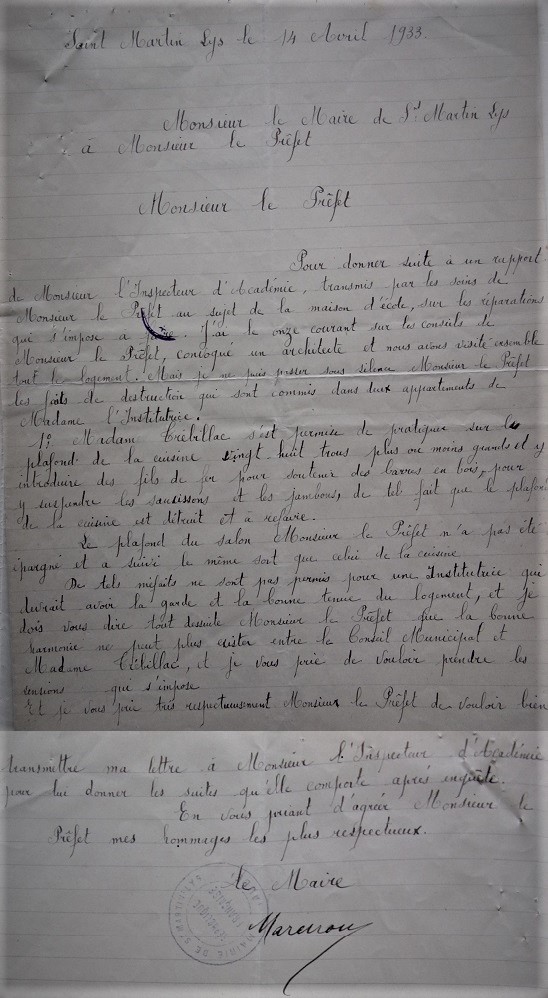 Saint Martin Lys le 14 Avril 1933.
Monsieur le Maire de St Martin Lys
à Monsieur le Prêfet
Monsieur le Prêfet
Pour donner suite à un rapport
de Monsieur l'Inspecteur d'Académie, transmis par les soins de
Monsieur le Prêfet au sujet de la maison d'école, sur les réparations
qui s'impose à faire. J'ai le onze courant sur les conseils de
Monsieur le Prêfet, convoqué un architecte et nous avons visité ensemble
tout le logement. Mais je ne puis passer sous silence Monsieur le Prêfet
les faits de destruction qui sont commis dans deux appartements de
Madame l'Institutrice.
1º Madame Trébillac s'est permise de pratiquer sur le
plafond de la cuisine vingt huit trous plus ou moins grands et y
introduire des fils de fer pour soutenir des barres en bois, pour
y suspendre les saucissons et les jambons, de tel fait que le plafond
de la cuisine est détruit et à refaire.
Le plafond du salon Monsieur le Prêfet n'a pas été
épargné et a suivi le même sort que celui de la cuisine
De tels méfaits ne sont pas permis pour une Institutrice qui
devrait avoir la garde et la bonne tenue du logement, et je
dois vous dire tout dessuite Monsieur le Prêfet que la bonne
harmonie ne peut plus exister entre le Conseil Municipal et
Madame Trébillac, et je vous prie de vouloir prendre les
qui s'impose
Et je vous prie très respectueusement Monsieur le Prêfet de vouloir bien
transmettre ma lettre à Monsieur l'Inspecteur d'Académie
pour lui donner les suites qu'elle comporte après enquête.
En vous priant d'agréer Monsieur le
Prêfet mes hommages les plus respectueux.
le Maire
MAIRIE DE ST MARTIN LYS